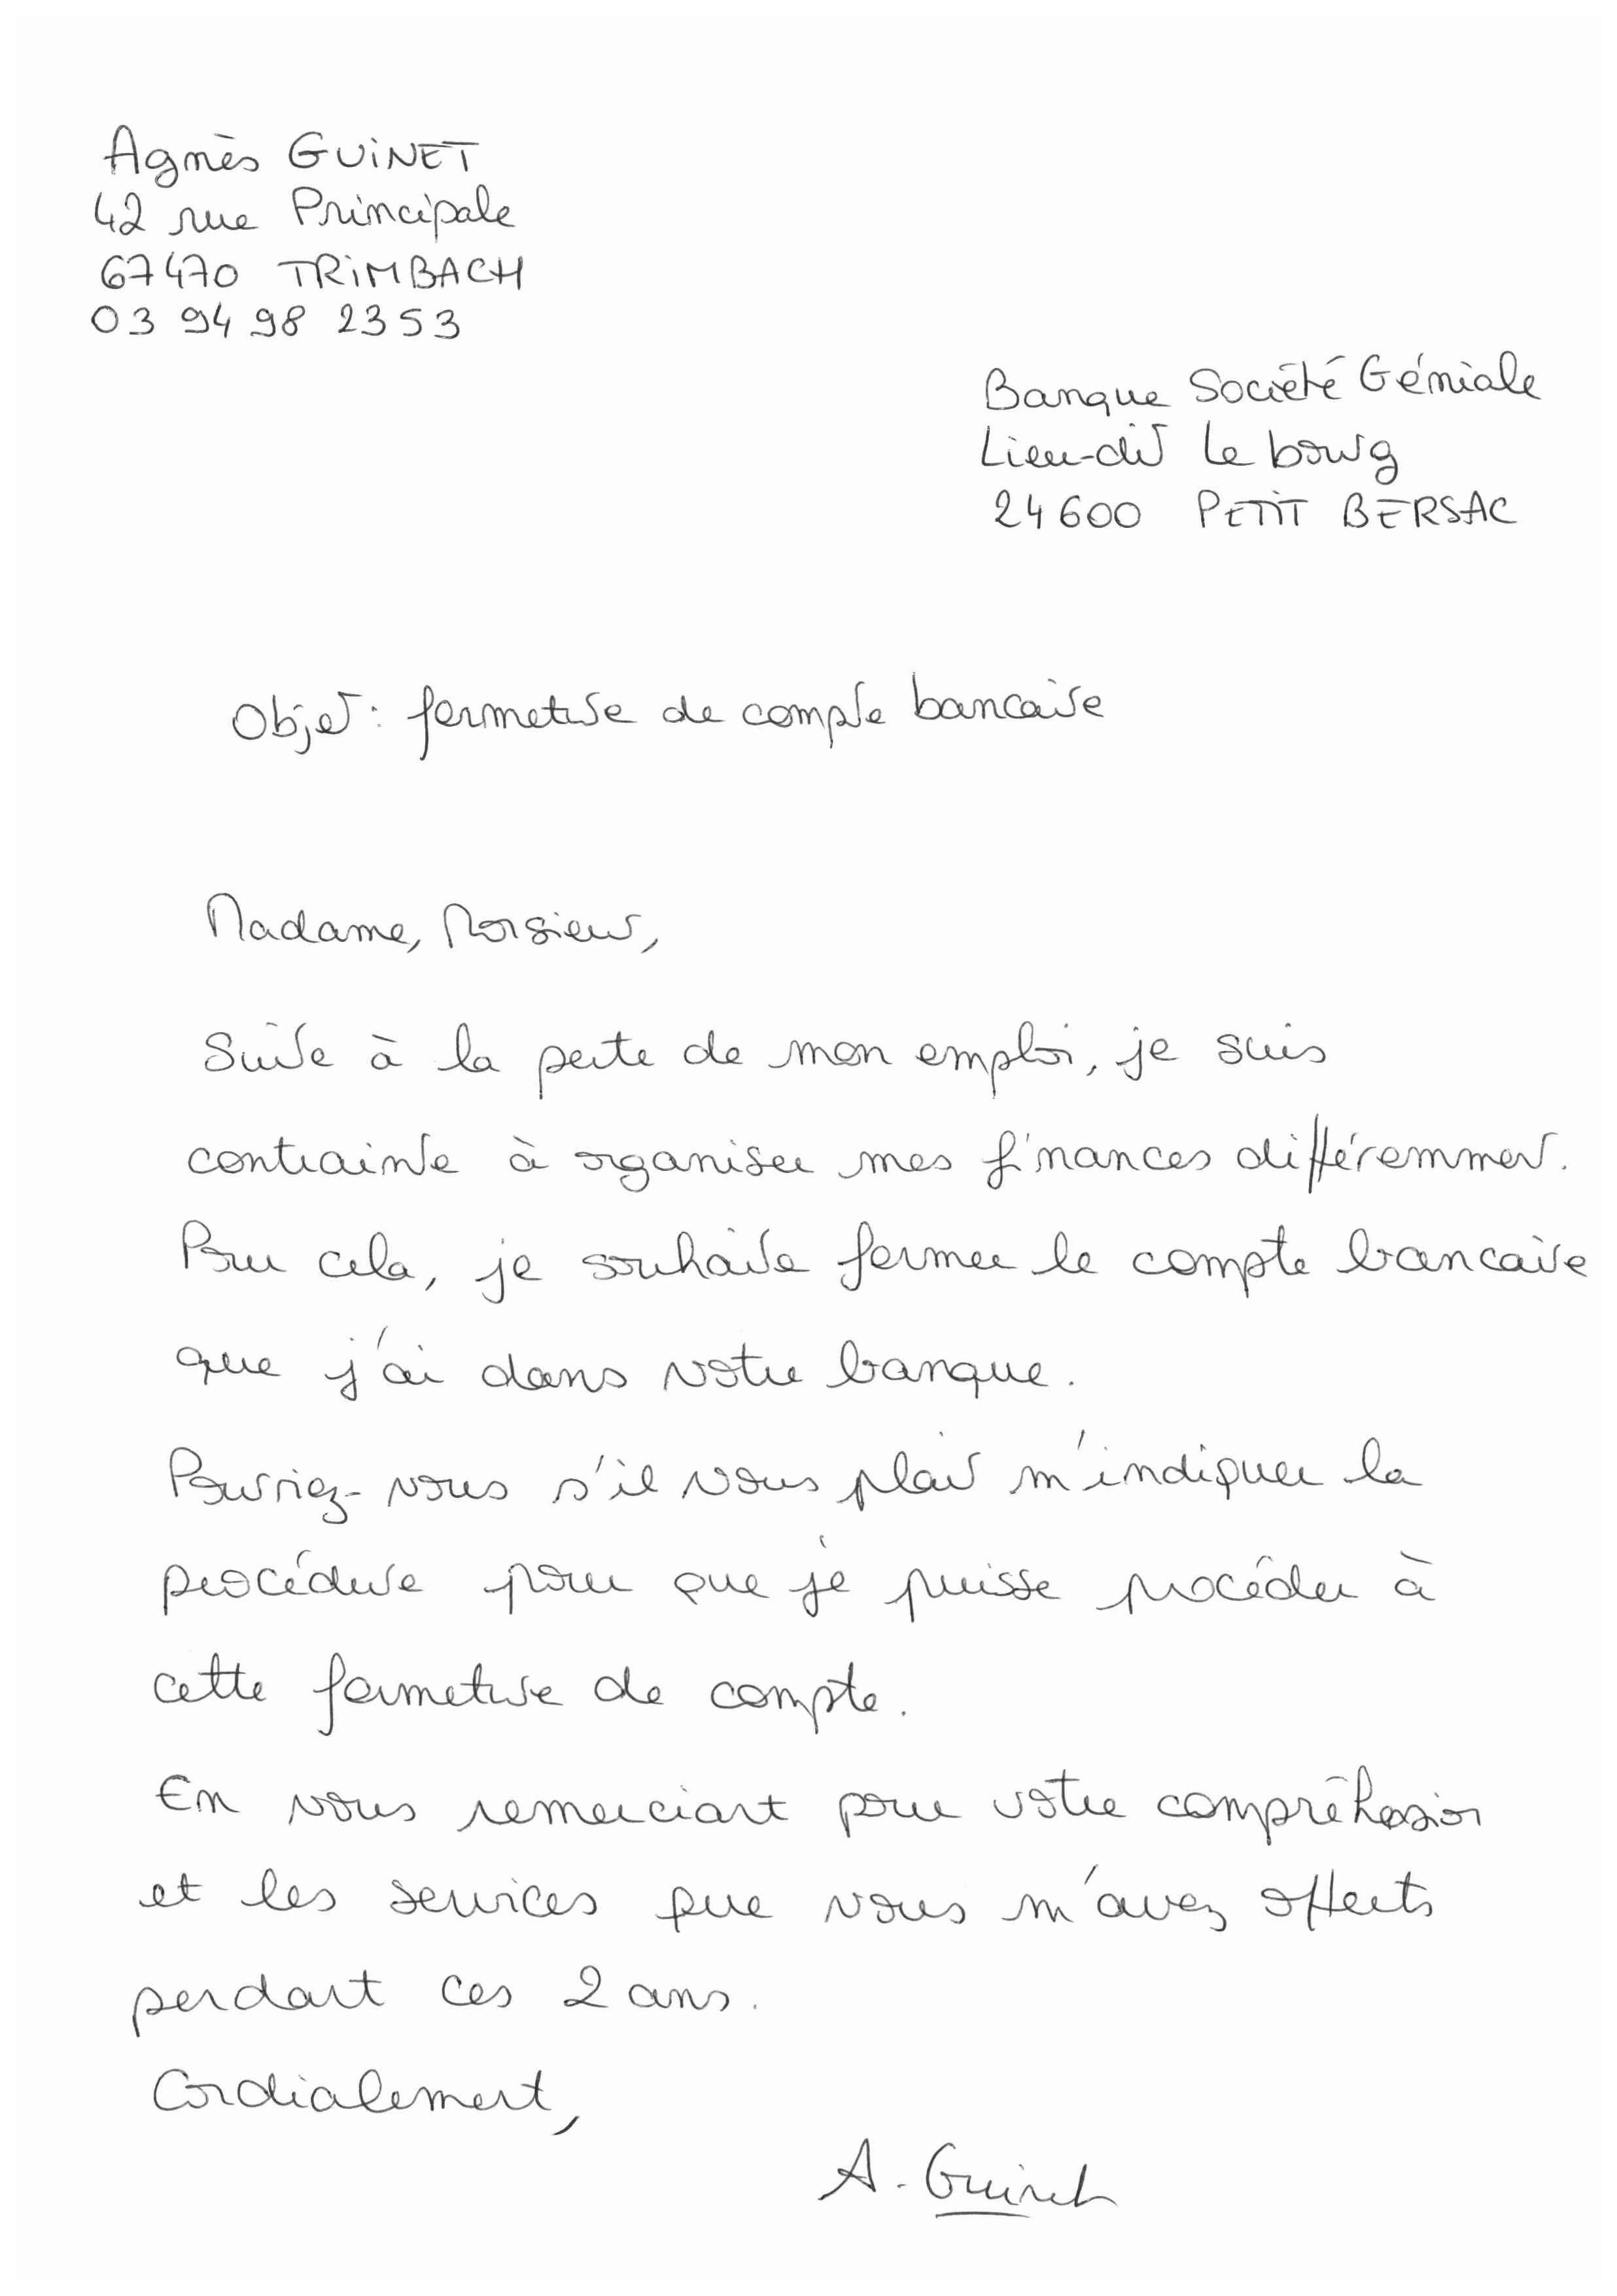 Agnès GUINET
42 rue Principale
67470 TRIMBACH
03 94 98 23 53
Banque Société Géniale
Lieu-dit Le bourg
24600 PETIT BERSAC
Objet : fermeture de compte bancaire
Madame, Monsieur,
Suite à la perte de mon emploi, je suis
contrainte à organiser mes finances différemment.
Pour cela, je souhaite fermer le compte bancaire
que j'ai dans votre banque.
Pourriez-vous s'il vous plait m'indiquer la
procédure pour que je puisse procéder à
cette fermeture de compte.
En vous remerciant pour votre compréhension
et les services que vous m'avez offerts
pendant ces 2 ans.
Cordialement,
A. Guinet